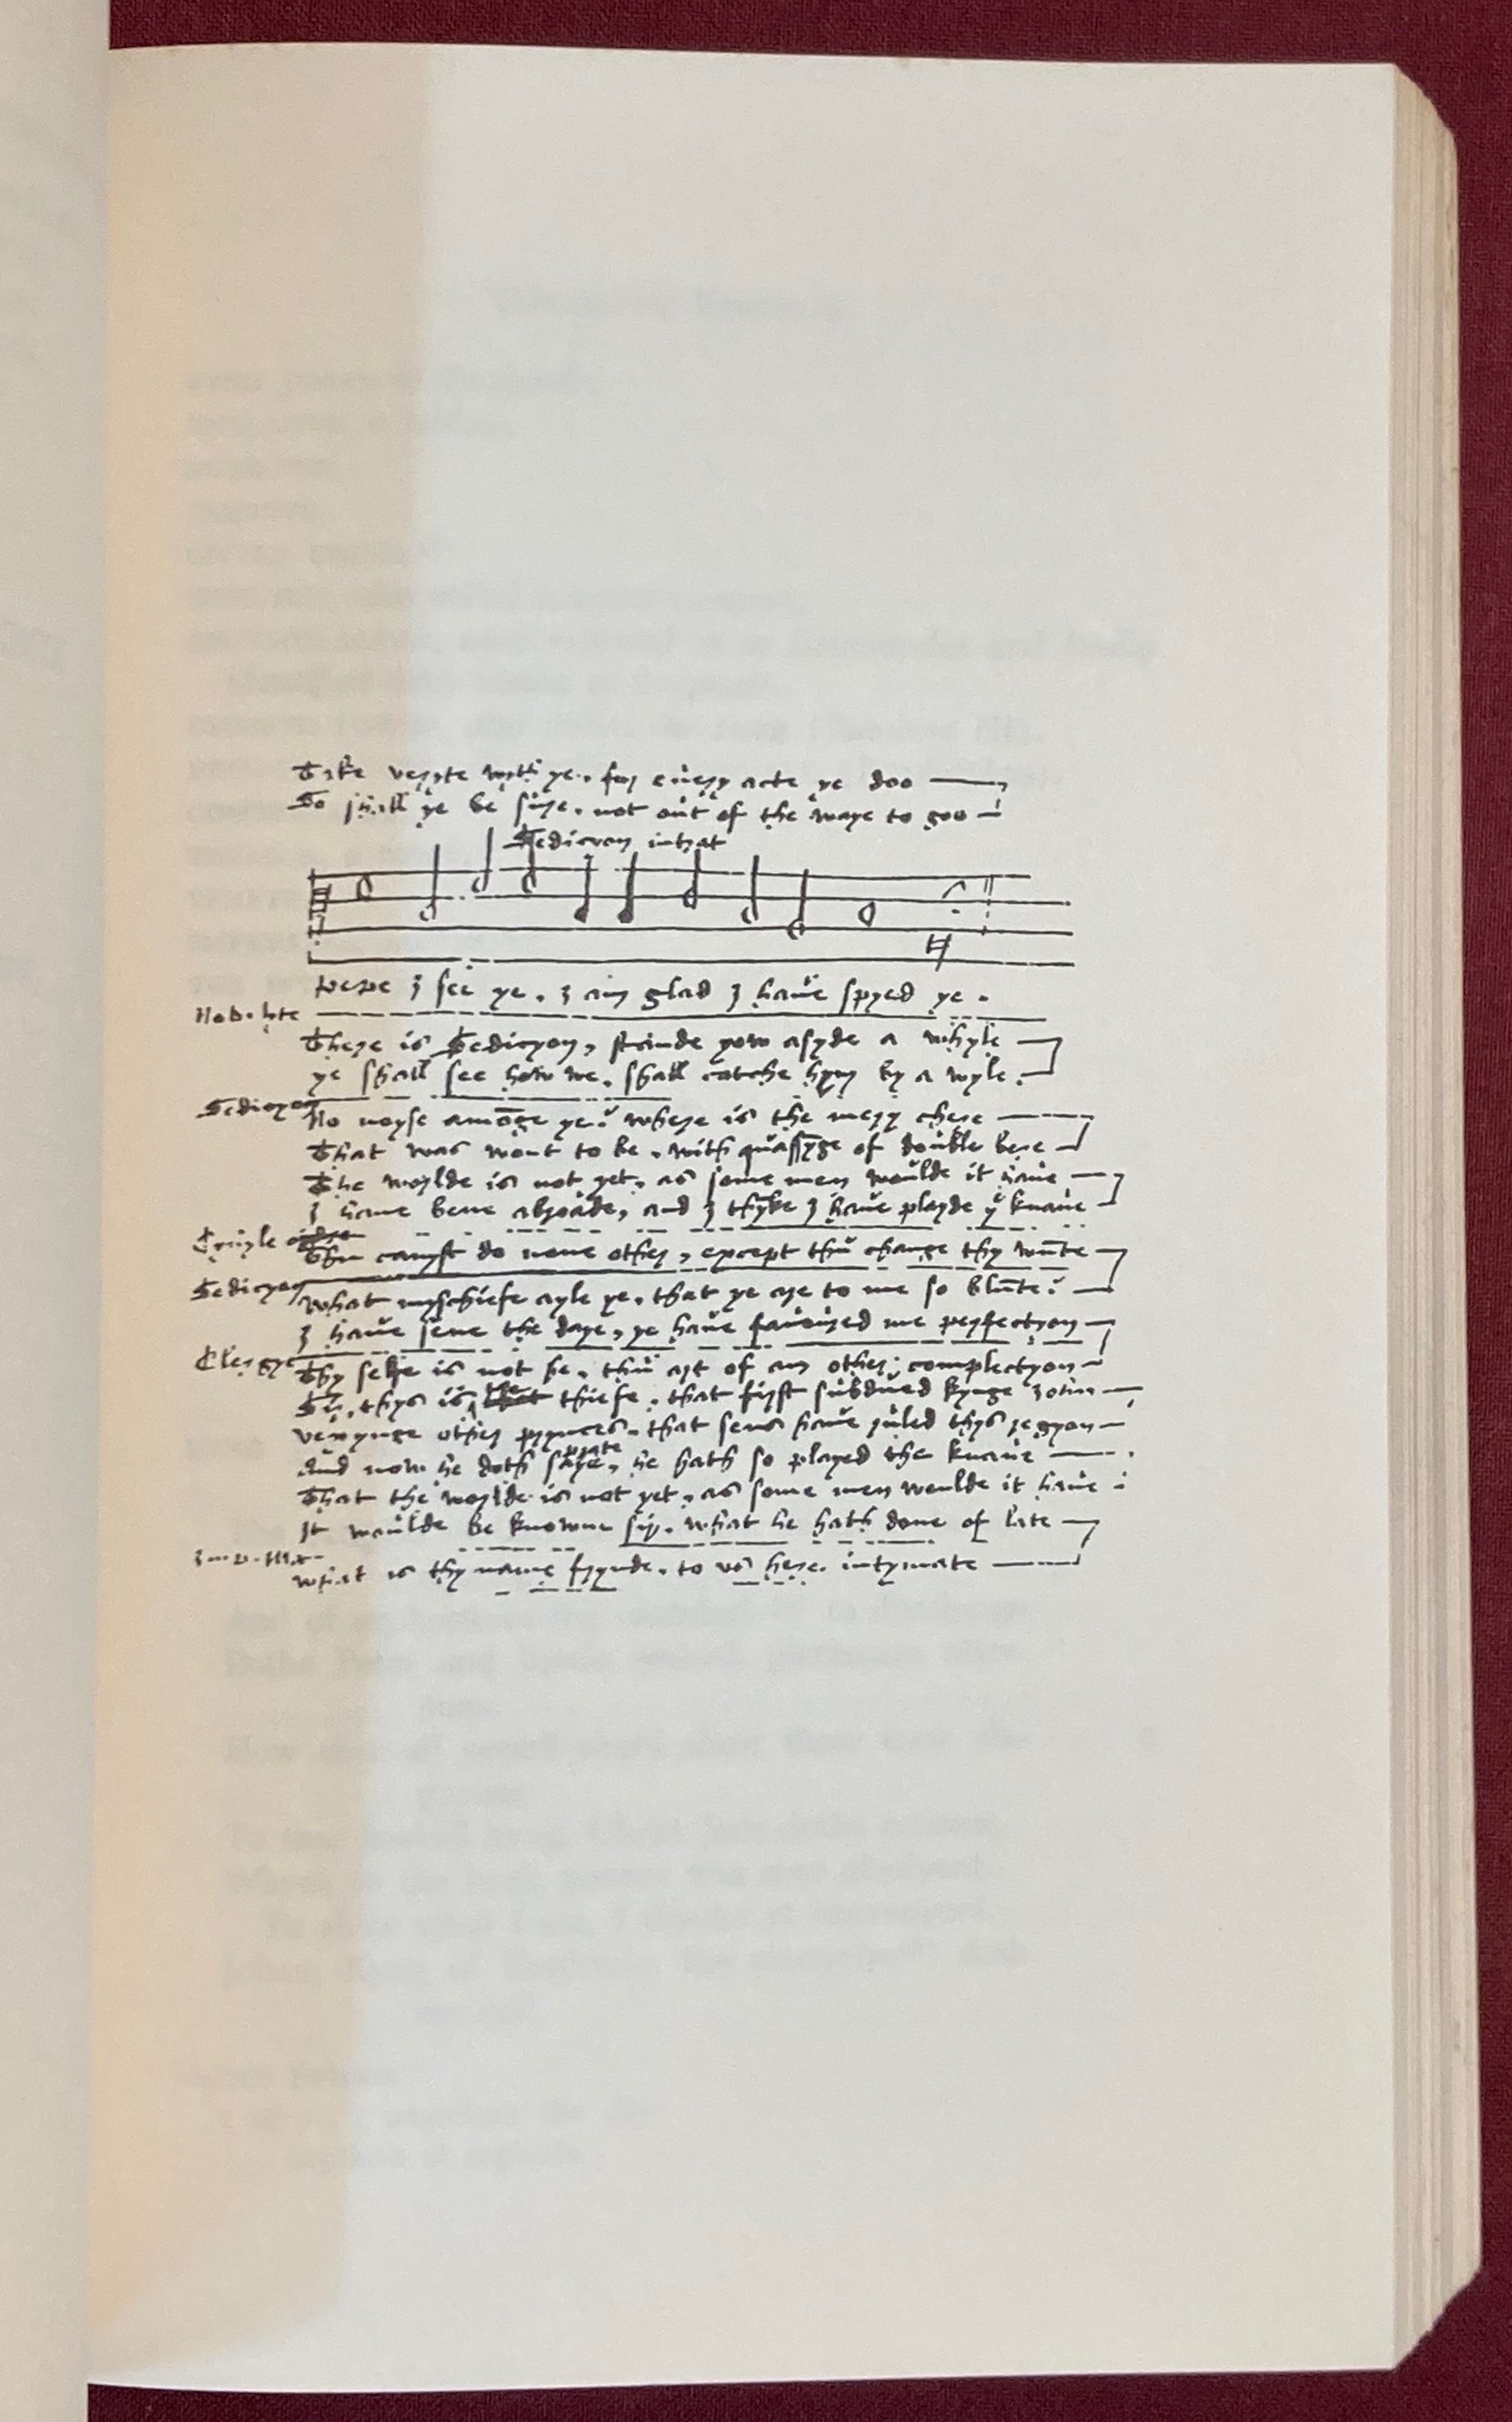 Take veryte wyth ye, for euery acte ye doo
So shall ye be sure, not out of the waye to goo
Sedicyon intrat
Pepe I see ye, I am glad I haue spyed ye.
Nobylyte
There is Sedicyon, stande yow asyde a whyle
ye shall see how we, shall catche hym by a wyle.
Sedicyon No noyse amōge ye? where is the mery chere
That was wont to be, with quassȳge of double bere
The worlde is not yet, as some men woulde it haue
I haue bene abroade, and I thȳke I haue playde yͤ knaue
Cyuyle
Thu canyst do none other, except thu change thy wūte
Sedicyon What myschiefe ayle ye, that ye are to me so blūte?
I haue sene the daye, ye haue fauoured me perfectyon
Clergye Thy selfe is not he, thu art of an other complectyon
Sir, thys is the thiefe, that first subdued kynge Iohn
vexynge other prynces, that sens haue ruled thys regyon
And now he doth prate, he hath so played the knaue
That the worlde is not yet, as some men woulde it haue
It woulde be knowne sir, what he hath done of late
Imp. Ma.
What is thy name frynde, to us here intymate